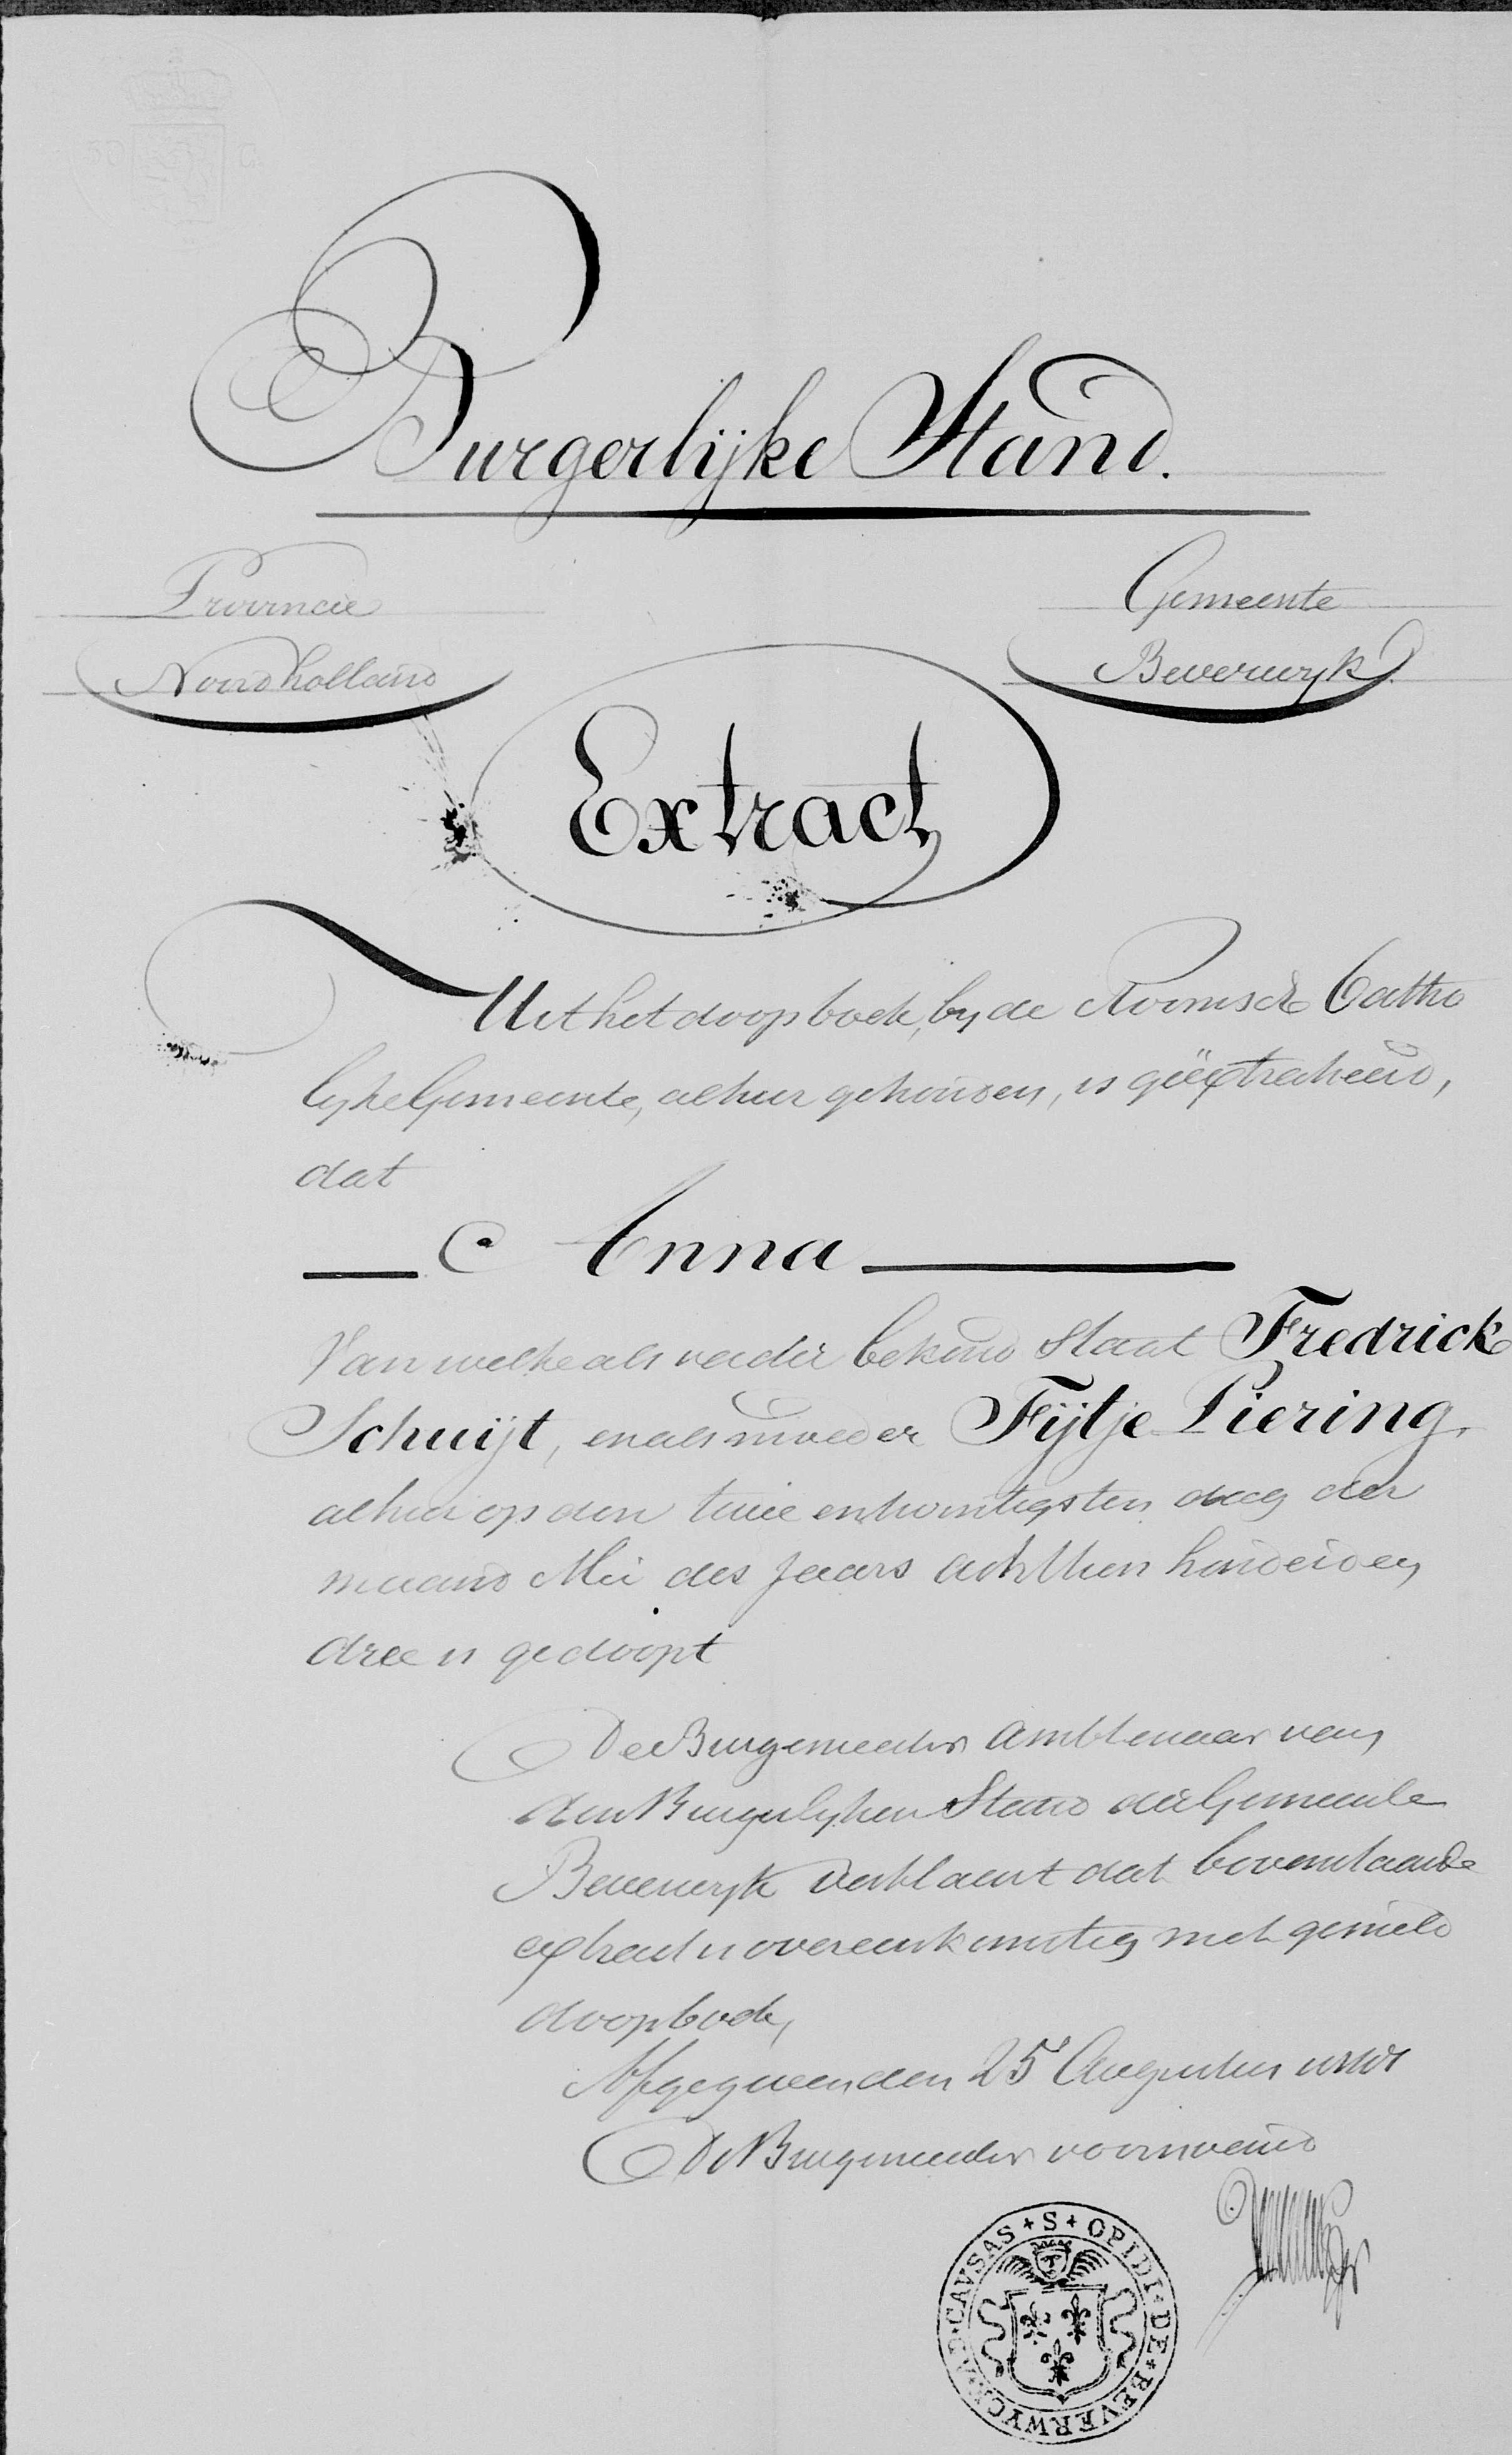 Burgerlijke Stand.
Provincie
Noordholland
Gemeente
Beverwyk
Extract
Uit het doopboek, by de Roomsch Catho
lyke Gemeente, alhier gehouden, is geëxtraheerd,
dat
Anna
Van welke als vader bekend Staat Fredrick
Schuijt, en als moeder Fijtje Piering,
alhier op den twee entwintigsten dag der
maand Mei des Jaars Achttien honderd en
dree is gedoopt
De Burgemeester Ambtenaar van
den Burgerlyken Stand der Gemeente
Beverwyk Verklaert dat bovenstaande
extract is overeenkomstig met gemeld
doopboek,
Afgegeven den 25 Augustus
De Burgemeester voornoemd
S + OPIDI · DE + BEVERWYCK · AD · CAVSAS +